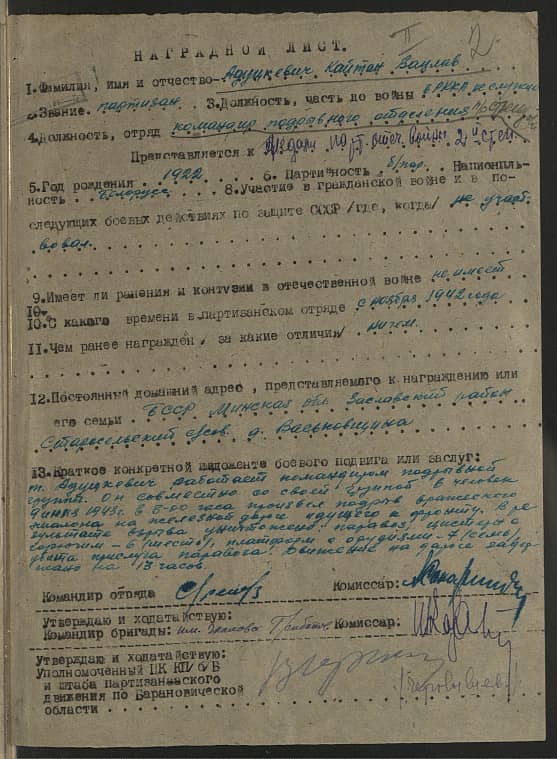 II 2
НАГРАДНОЙ ЛИСТ.
1.Фамилия, имя и отчество Адуцкевич Кайтан Вацлав.
2.Звание. партизан. 3.Должность, часть до войны в РККА не служил
4.Должность, отряд командир подрывного отделения
Представляется к Ордену отеч. войны 2й степ.
5.Год рождения 1922 6. Партийность б/пар. Националь-
ность Белорус 8.Участие в гражданской войне и в по-
следующих боевых действиях по защите СССР /где, когда/ не участ.
вовал.
9.Имеет ли ранения и контузии в отечественной войне не имеет
10.
10.С какого времени в партизанском отряде с ноября 1942 года
11.Чем ранее награжден, за какие отличия/ ничем.
12.Постоянный домашний адрес, представляемого к награждению или
его семьи БССР Минская обл Заславский район
Старосельский с/сов. д. Васьковщина
13.Краткое конкретной изложение боевого подвига или заслуг:
т. Адуцкевич работает командиром подрывной
группы. Он совместно со своей группой в человек
9 июня 1943г. в 8-00 часа произвел подрыв вражеского
эшалона на железной дороге идущего к фронту. В ре-
зультате взрыва уничтожено: паравоз, цистерн с
горючим - 6 /шесть/, платформ с орудиями - 7 /семь/,
убита прислуга паравоза. Движение на дороге задер
жано на 13 часов.
Командир отряда Комиссар:
Утверждаю и ходатайствую:
Командир бригады: им. Чкалова Комиссар:
Утверждаю и ходатайствую:
Уполномоченный ЦК КП/б/Б
и штаба партизанского
движения по Барановической
области